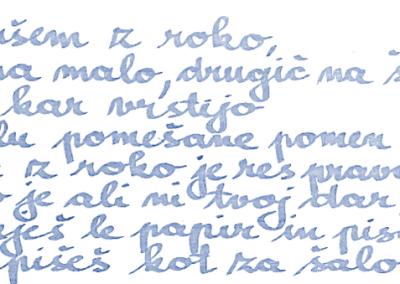 išem iz roko,
na malo, drugič na š
kar vrstijo
lu pomešane pomen
iz roko je res prava
je ali ni tvoj dar
ješ le papir in piš
pišeš kot za šalo